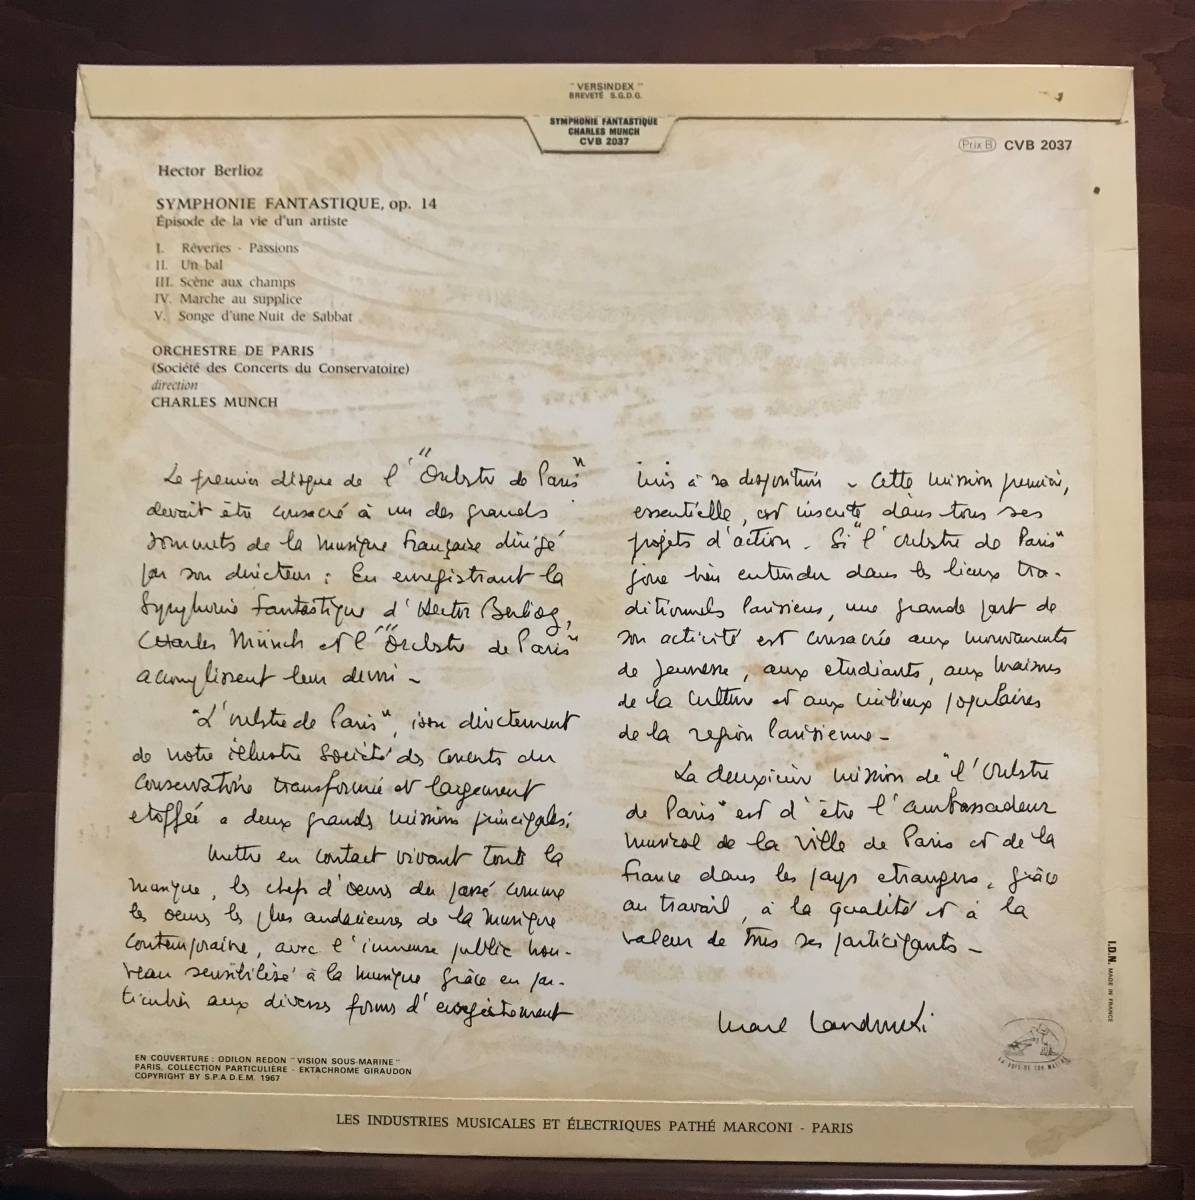 " VERSINDEX "
BREVETÉ S.G.D.G.
SYMPHONIE FANTASTIQUE
CHARLES MUNCH
CVB 2037
Prix B CVB 2037
Hector Berlioz
SYMPHONIE FANTASTIQUE, op. 14
Épisode de la vie d'un artiste
I. Rêveries - Passions
II. Un bal
III. Scène aux champs
IV. Marche au supplice
V. Songe d'une Nuit de Sabbat
ORCHESTRE DE PARIS
(Société des Concerts du Conservatoire)
direction
CHARLES MUNCH
Le premier disque de l'"Orchestre de Paris"
devait être consacré à un des grands
sommets de la musique française dirigé
par son directeur : En enregistrant la
Symphonie Fantastique d'Hector Berlioz,
Charles Münch et l'"Orchestre de Paris"
accomplissent leur devoir -
"L'orchestre de Paris", issu directement
de notre illustre Société des Concerts du
Conservatoire transformé et largement
etoffée a deux grandes missions principales:
Mettre en contact vivant toute la
musique, les chefs d'oeuvres du passé comme
les oeuvres les plus audacieuses de la musique
contemporaine, avec l'immense public nou-
veau sensibilisé à la musique grâce en par-
ticulier aux diverses formes d'enregistrement
mis à sa disposition - Cette mission première,
essentielle, est inscrite dans tous ses
projets d'action. Si "l'orchestre de Paris"
joue bien entendu dans les lieux tra-
ditionnels Parisiens, une grande part de
son activité est consacrée aux mouvements
de jeunesse, aux etudiants, aux maisons
de la Culture et aux milieux populaires
de la region Parisienne -
La deuxième mission de "l'Orchestre
de Paris" est d'être l'ambassadeur
musical de la ville de Paris et de la
France dans les pays etrangers, grâce
au travail, à la qualité et à la
valeur de tous ses participants -
Marcel Landowski
EN COUVERTURE : ODILON REDON "VISION SOUS-MARINE"
PARIS. COLLECTION PARTICULIÈRE - EKTACHROME GIRAUDON
COPYRIGHT BY S.P.A.D.E.M. 1967
I.D.N. MADE IN FRANCE
LA VOIX DE SON MAITRE
LES INDUSTRIES MUSICALES ET ÉLECTRIQUES PATHÉ MARCONI - PARIS